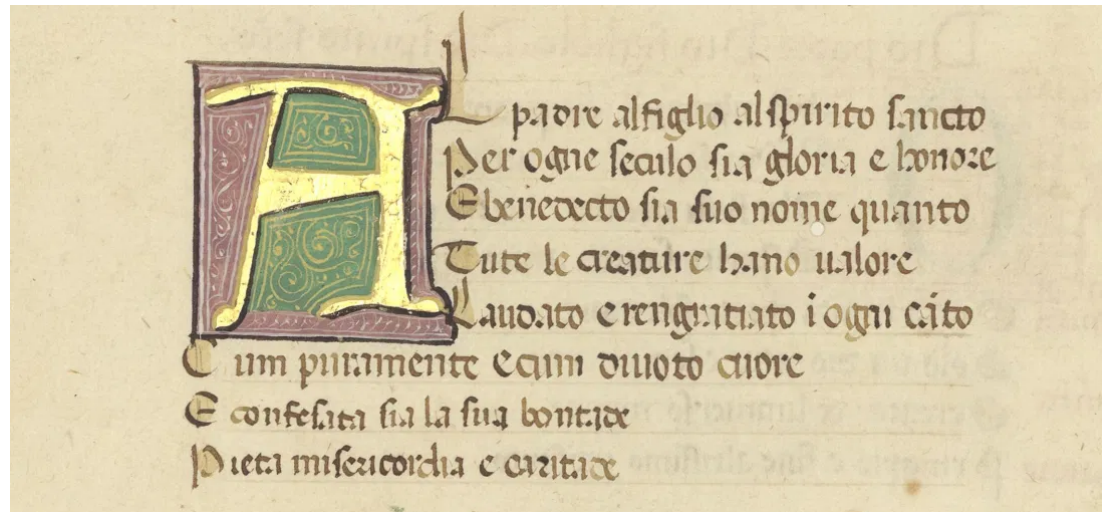 AL padre al figlio al spirito sancto
Per ogne seculo sia gloria e honore
E benedecto sia suo nome quanto
Tute le creature hano ualore
Laudato e rengratiato i ogni cāto
Cum puramente e cum diuoto cuore
E confesata sia la sua bontade
Pieta misericordia e caritade